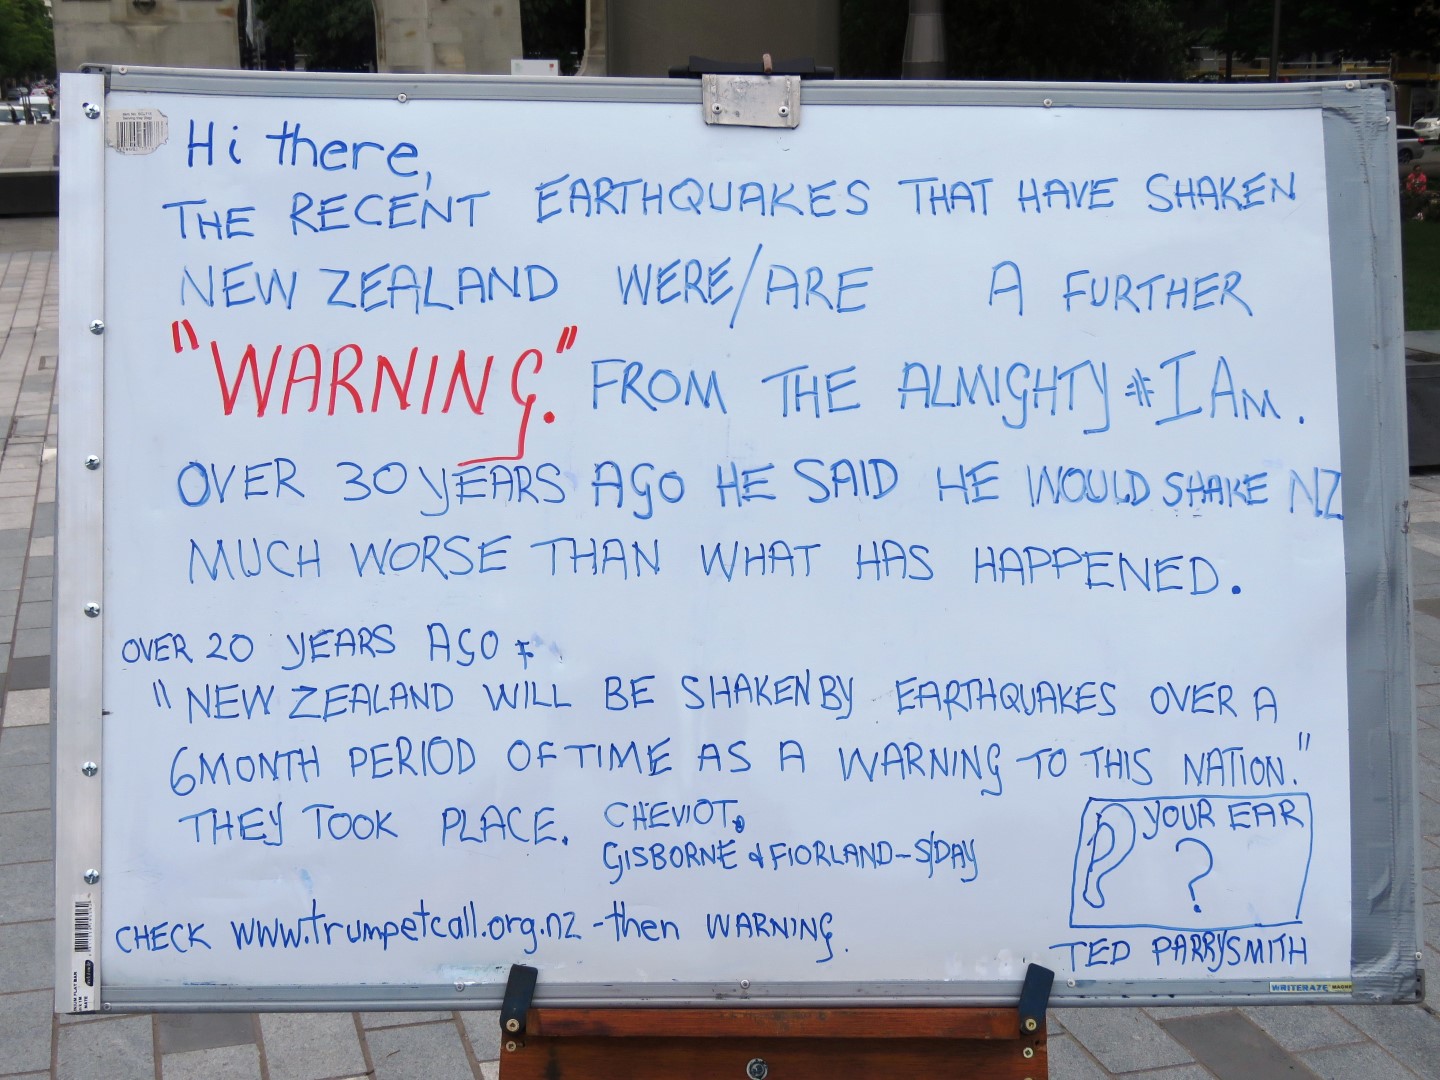 Hi there,
THE RECENT EARTHQUAKES THAT HAVE SHAKEN
NEW ZEALAND WERE/ARE A FURTHER
"WARNING." FROM THE ALMIGHTY # I AM.
OVER 30 YEARS AGO HE SAID HE WOULD SHAKE NZ
MUCH WORSE THAN WHAT HAS HAPPENED.
OVER 20 YEARS AGO
"NEW ZEALAND WILL BE SHAKEN BY EARTHQUAKES OVER A
6 MONTH PERIOD OF TIME AS A WARNING TO THIS NATION."
THEY TOOK PLACE. CHEVIOT,
GISBORNE & FIORLAND-S/DAY
YOUR EAR
?
CHECK www.trumpetcall.org.nz - then WARNING.
TED PARRYSMITH
WRITERAZE